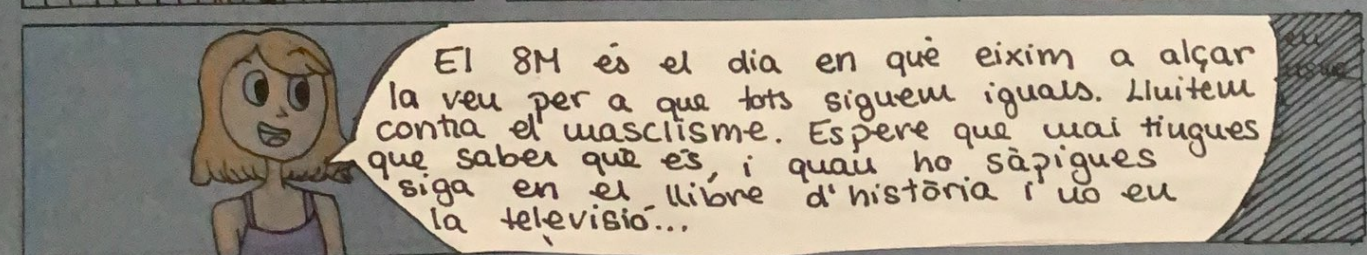 El 8M és el dia en què eixim a alçar
la veu per a que tots siguem iguals. Lluitem
contra el masclisme. Espere que mai tingues
que saber què és, i quan ho sàpigues
siga en el llibre d'història i no en
la televisió...